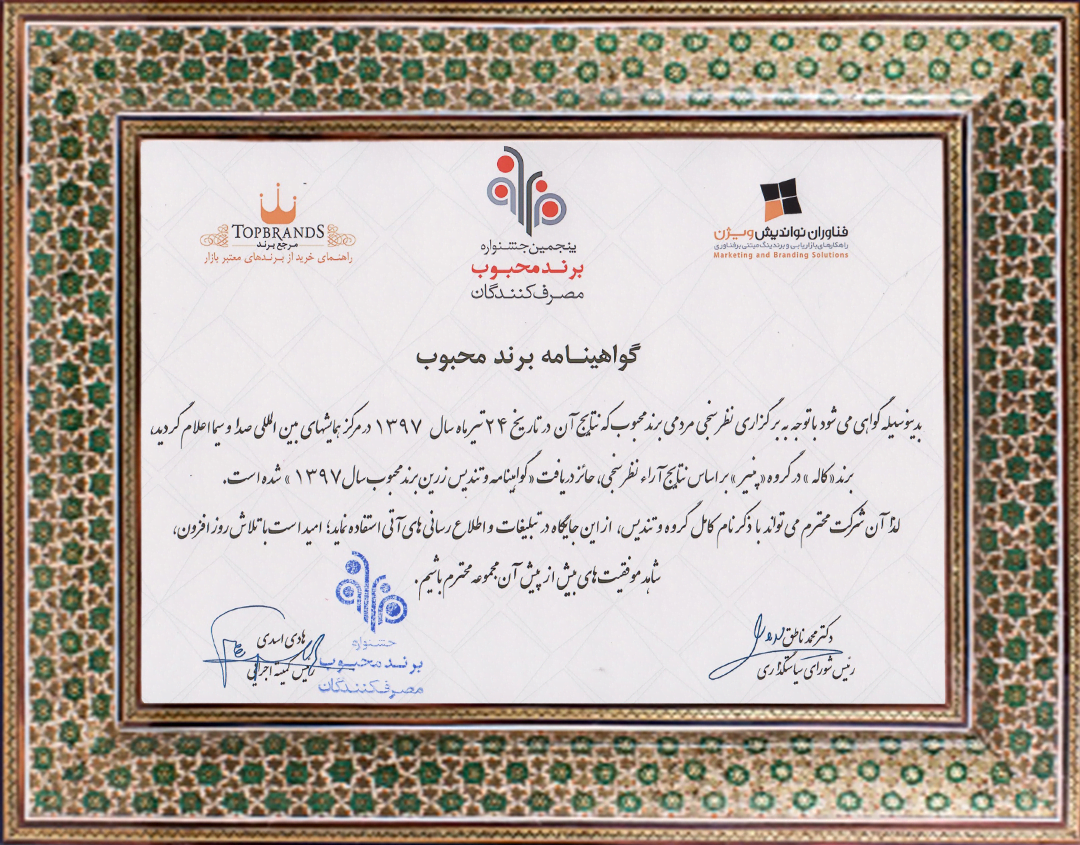 TOPBRANDS
مرجع برند
راهنمای خرید از برندهای معتبر بازار
پنجمین جشنواره
برند محبوب
مصرف‌کنندگان
فناوران نواندیش ویژن
راهکارهای بازاریابی و برندینگ مبتنی بر فناوری
Marketing and Branding Solutions
گواهینامه برند محبوب
بدینوسیله گواهی می شود با توجه به برگزاری نظرسنجی مردمی برند محبوب که نتایج آن در تاریخ ۲۴ تیرماه سال ۱۳۹۷ در مرکز همایشهای بین المللی صدا و سیما اعلام گردید،
برند «کاله» در گروه «پنیر» بر اساس نتایج آراء نظرسنجی، حائز دریافت «گواهینامه و تندیس زرین برند محبوب سال ۱۳۹۷» شده است.
لذا آن شرکت محترم می تواند با ذکر نام کامل گروه و تندیس، از این جایگاه در تبلیغات و اطلاع رسانی های آتی استفاده نماید؛ امید است با تلاش روز افزون،
شاهد موفقیت های بیش از پیش آن مجموعه محترم باشیم.
دکتر محمد ناطق
رئیس شورای سیاستگذاری
هادی اسدی
رئیس کمیته اجرایی
جشنواره
برند محبوب
مصرف‌کنندگان